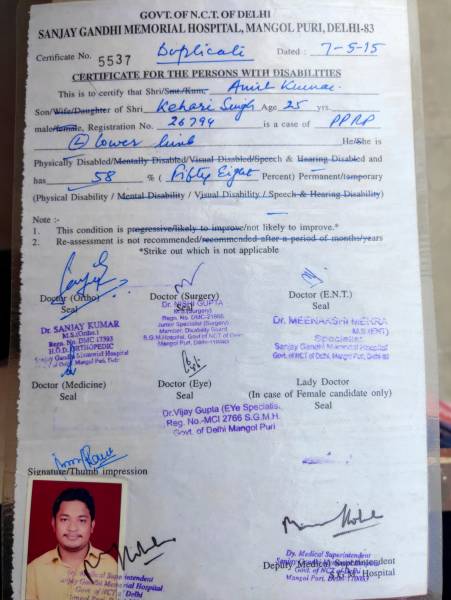 GOVT. OF N.C.T. OF DELHI
SANJAY GANDHI MEMORIAL HOSPITAL, MANGOL PURI, DELHI-83
Certificate No. 5537 Duplicate Dated : 7-5-15
CERTIFICATE FOR THE PERSONS WITH DISABILITIES
This is to certify that Shri/Smt./Kum. Amit Kumar
Son/Wife/Daughter of Shri Kehari Singh Age 25 yrs.
male/female, Registration No. 26794 is a case of PPRP
(L) lower limb He/She is
Physically Disabled/Mentally Disabled/Visual Disabled/Speech & Hearing Disabled and
has 58 % ( Fifty Eight Percent) Permanent/temporary
(Physical Disability / Mental Disability / Visual Disability / Speech & Hearing Disability)
Note :-
1. This condition is progressive/likely to improve/not likely to improve.*
2. Re-assessment is not recommended/recommended after a period of months/years
*Strike out which is not applicable
Doctor (Ortho) Doctor (Surgery) Doctor (E.N.T.)
Seal Seal Seal
Dr. SANJAY KUMAR
M.S.(Ortho.)
Regn. No. DMC 17393
H.O.D. ORTHOPEDIC
Sanjay Gandhi Memorial Hospital
Dr. NISHI GUPTA
M.S.(Surgery)
Junior Specialist (Surgery)
Member, Disability Board
S.G.M.Hospital, Govt. of NCT of Delhi
Mangol Puri, Delhi
Dr. MEENAKSHI MEHRA
M.S.(ENT)
Specialist
Sanjay Gandhi Memorial Hospital
Govt. of NCT of Delhi, Mangol Puri, Delhi-83
Doctor (Medicine) Doctor (Eye) Lady Doctor
Seal Seal (In case of Female candidate only)
Seal
Dr.Vijay Gupta (EYe Specialis
Reg. No.-MCI 2766 S.G.M.H.
Govt. of Delhi Mangol Puri
Signature/Thumb impression
Dy. Medical Superintendent
Sanjay Gandhi Memorial Hospital
Govt. of NCT of Delhi
Mangol Puri, Delhi
Dy. Medical Superintendent
Deputy Medical Superintendent
S.G.M. Hospital
Govt. of NCT of Delhi
Mangol Puri, Delhi-110083